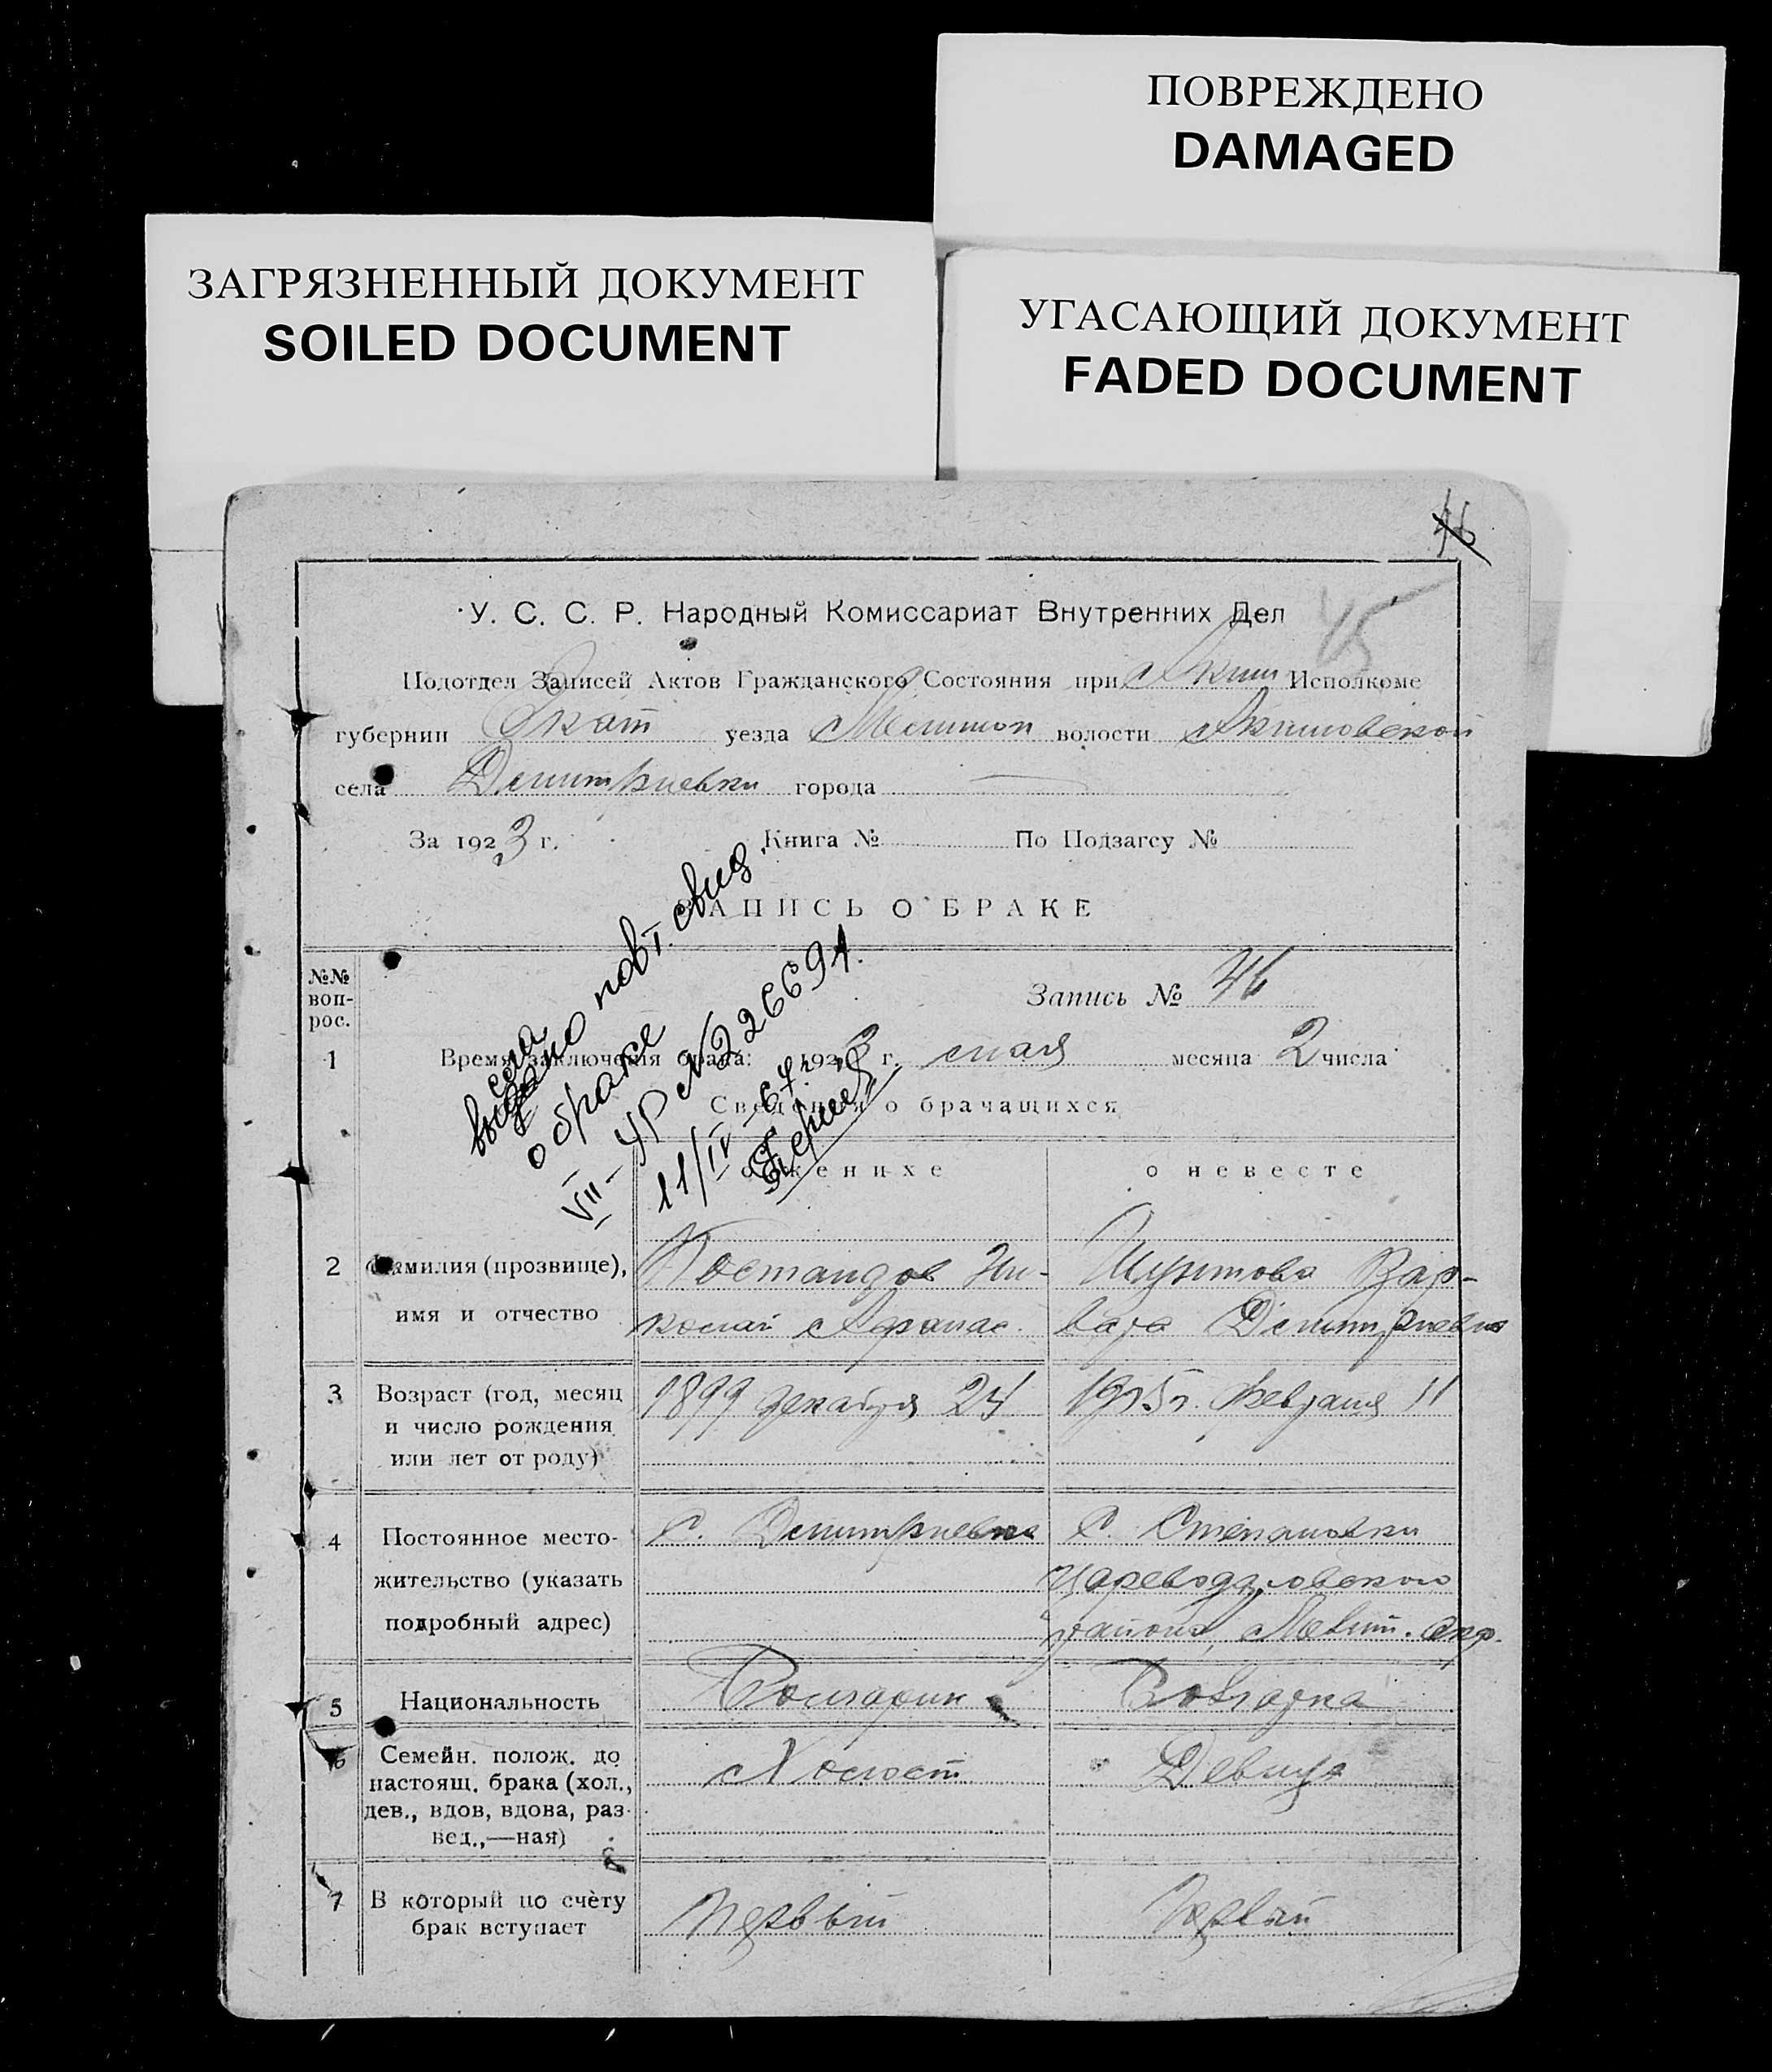 ПОВРЕЖДЕНО
DAMAGED
ЗАГРЯЗНЕННЫЙ ДОКУМЕНТ
SOILED DOCUMENT
УГАСАЮЩИЙ ДОКУМЕНТ
FADED DOCUMENT
46
45
У. С. С. Р. Народный Комиссариат Внутренних Дел
Подотдел Записей Актов Гражданского Состояния при Аким Исполкоме
губернии Екат уезда Мелитоп волости Акимовской
села Демитриевки города
За 1923 г. Книга № По Подзагсу №
ЗАПИСЬ О БРАКЕ
№№ воп-
рос.
Запись № 46
1 Время заключения брака: 1923 г. мая месяца 2 числа
Сведения о брачащихся
о женихе о невесте
выдано повт. свид.
о браке
VII-УР № 226691.
11/IV-67г.
2 Фамилия (прозвище), имя и отчество
Костандов Ни-
колай Афанас.
Шуптова Вар-
вара Демитриевна
3 Возраст (год, месяц
и число рождения
или лет от роду)
1899 декабря 24
февраля 11
4 Постоянное место-
жительство (указать
подробный адрес)
С. Демитриевка
С. Степановки
Цареводаровского
района, Мелит. окр.
5 Национальность
Болгарин
Болгарка
6 Семейн. полож. до
настоящ. брака (хол.,
дев., вдов, вдова, раз-
вед.,—ная)
Холост
Девица
7 В который по счёту
брак вступает
Первый
Первый